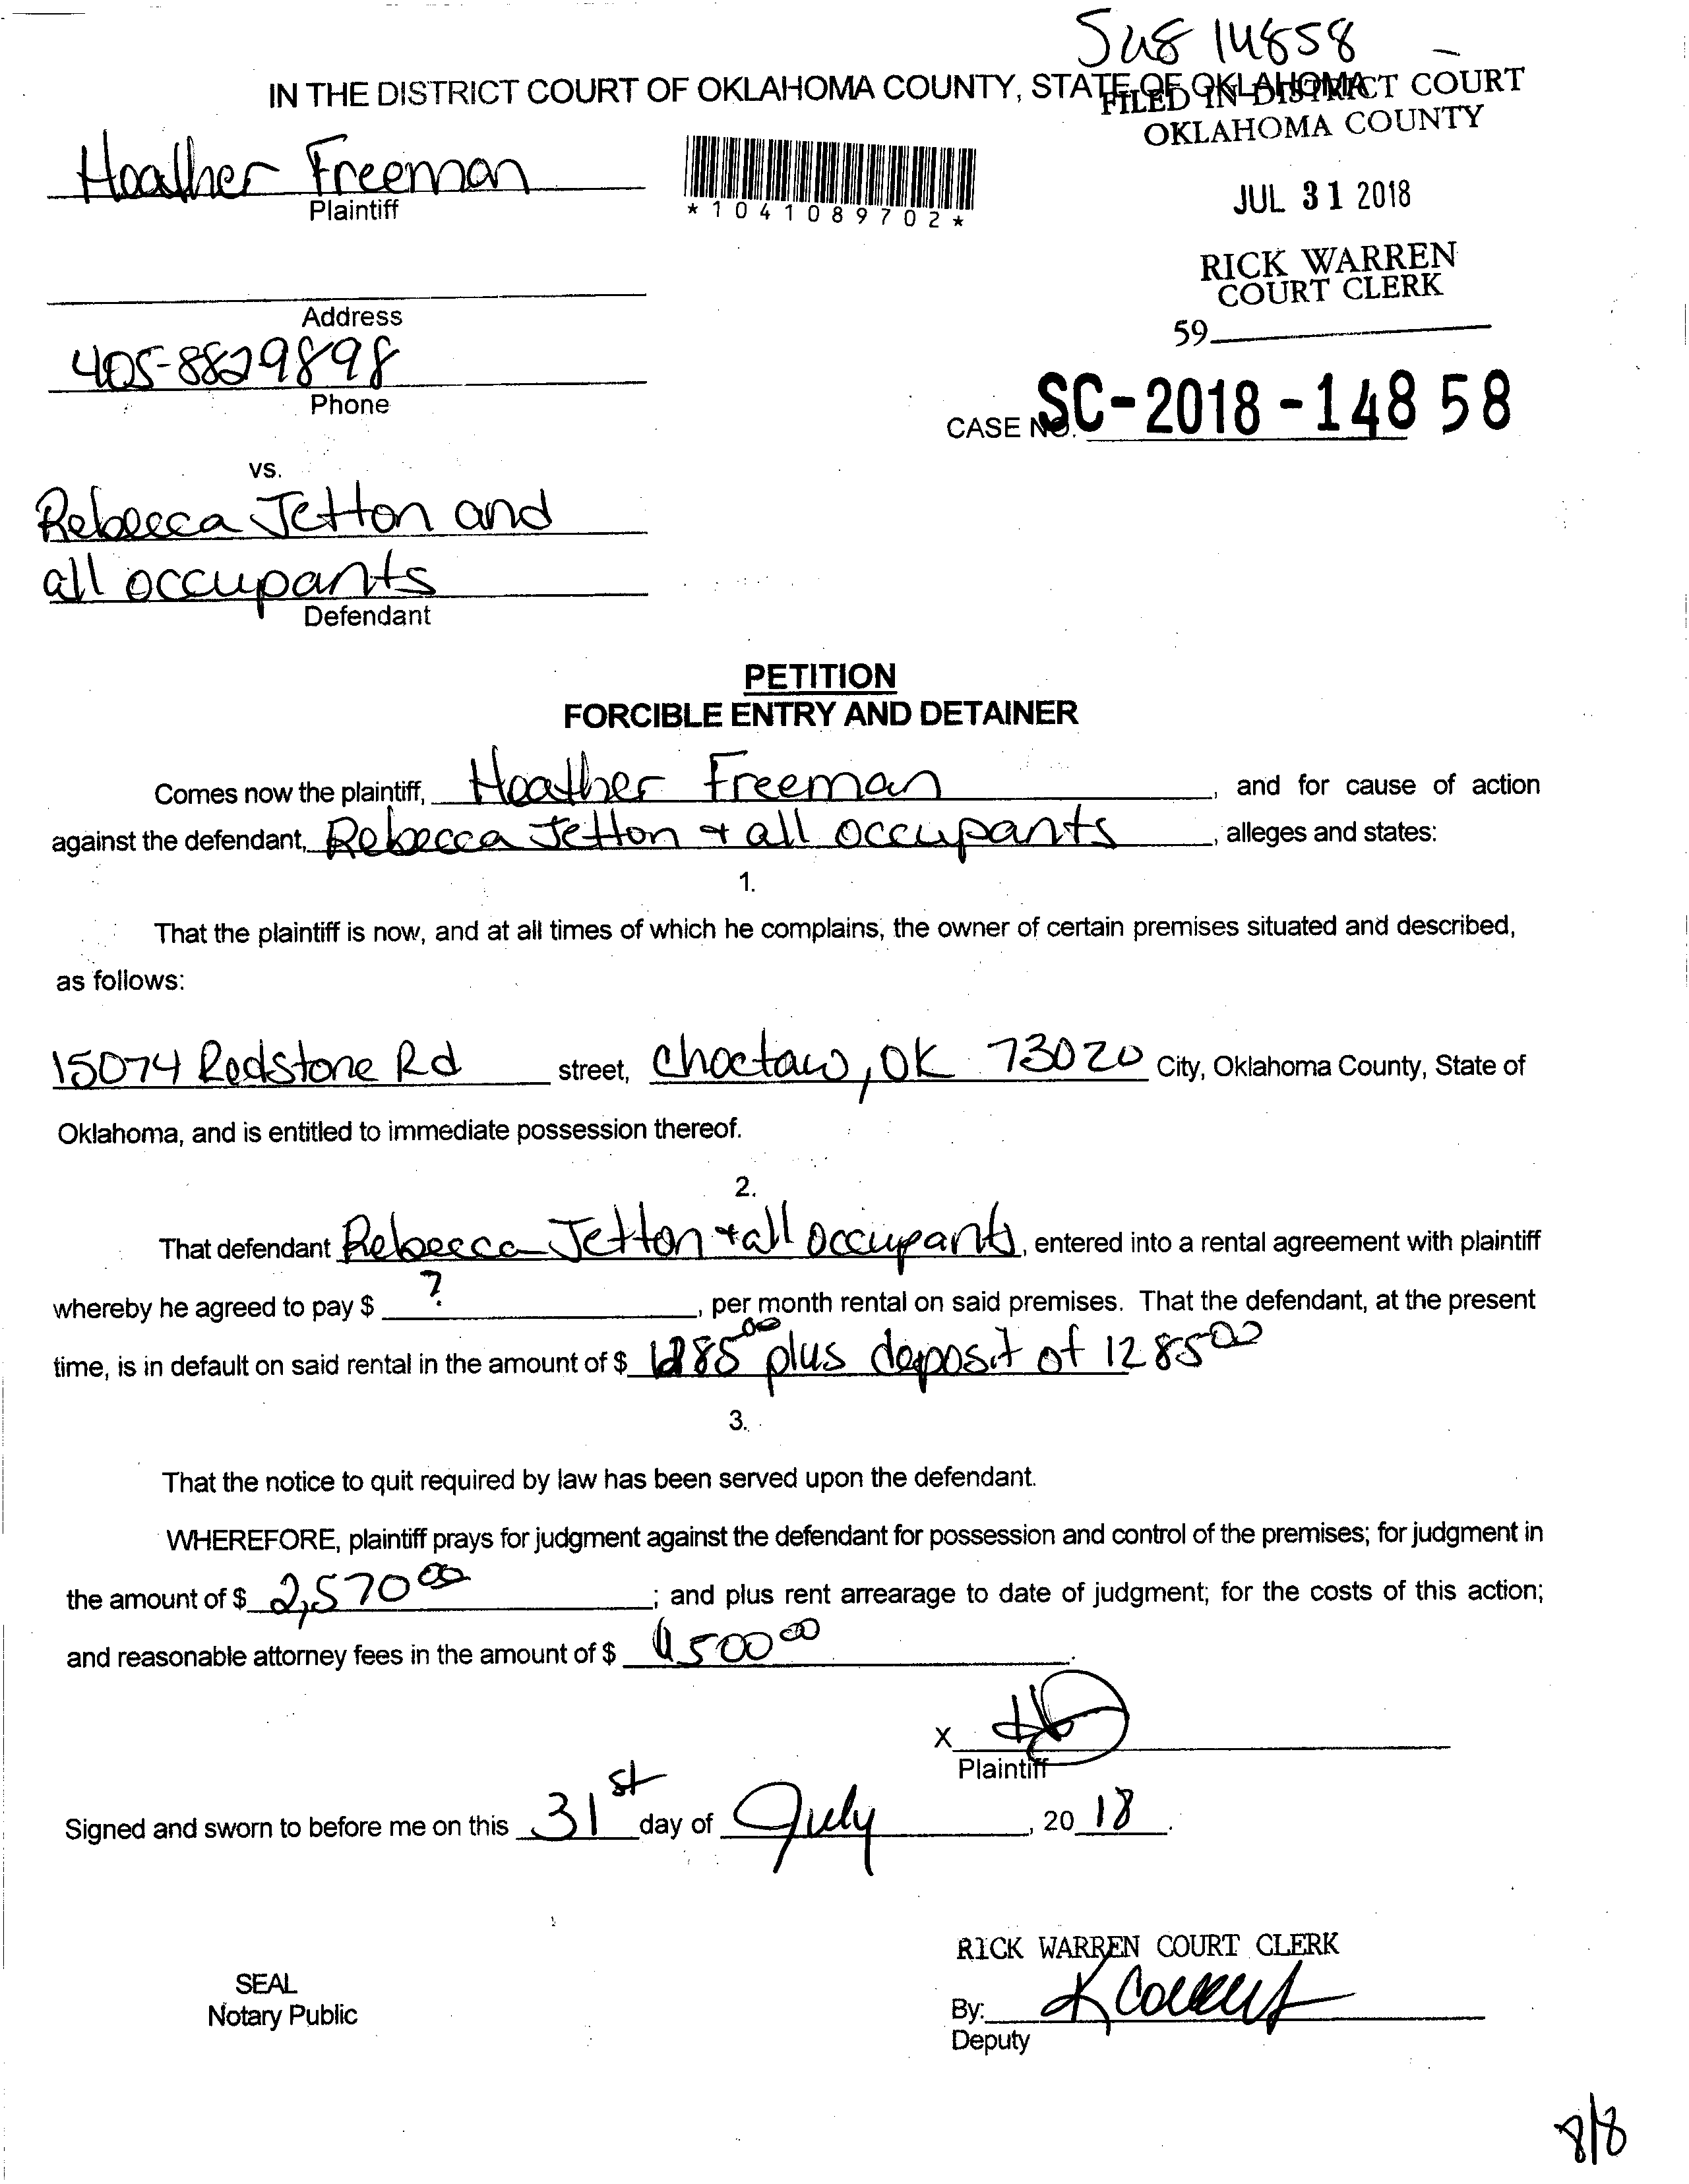 SUS 14858
IN THE DISTRICT COURT OF OKLAHOMA COUNTY, STATE OF OKLAHOMA
FILED IN DISTRICT COURT
OKLAHOMA COUNTY
Heather Freeman
Plaintiff
*1041089702*
JUL 31 2018
RICK WARREN
COURT CLERK
59
Address
405-8829898
Phone
CASE NO. SC-2018-14858
vs.
Rebecca Jetton and
all occupants
Defendant
PETITION
FORCIBLE ENTRY AND DETAINER
Comes now the plaintiff, Heather Freeman, and for cause of action
against the defendant, Rebecca Jetton + all occupants, alleges and states:
1.
That the plaintiff is now, and at all times of which he complains, the owner of certain premises situated and described,
as follows:
15074 Redstone Rd street, Choctaw, OK 73020 City, Oklahoma County, State of
Oklahoma, and is entitled to immediate possession thereof.
2.
That defendant Rebecca Jetton + all occupants, entered into a rental agreement with plaintiff
whereby he agreed to pay $ ?, per month rental on said premises. That the defendant, at the present
time, is in default on said rental in the amount of $ 1285.00 plus deposit of 1285.00
3.
That the notice to quit required by law has been served upon the defendant.
WHEREFORE, plaintiff prays for judgment against the defendant for possession and control of the premises; for judgment in
the amount of $ 2,570.00; and plus rent arrearage to date of judgment; for the costs of this action;
and reasonable attorney fees in the amount of $ 500.00.
X
Plaintiff
Signed and sworn to before me on this 31st day of July, 20 18.
RICK WARREN COURT CLERK
SEAL
Notary Public
By:
Deputy
8/8